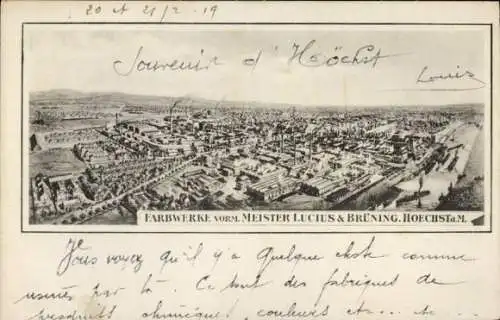 20 et 21/2 - 19
Souvenir d'Höchst
Louis
FARBWERKE VORM. MEISTER LUCIUS & BRÜNING, HOECHST A. M.
Vous voyez qu'il y'a Quelque chose comme
usines par là. Ce sont des fabriques de
produits chimiques, couleurs etc... etc